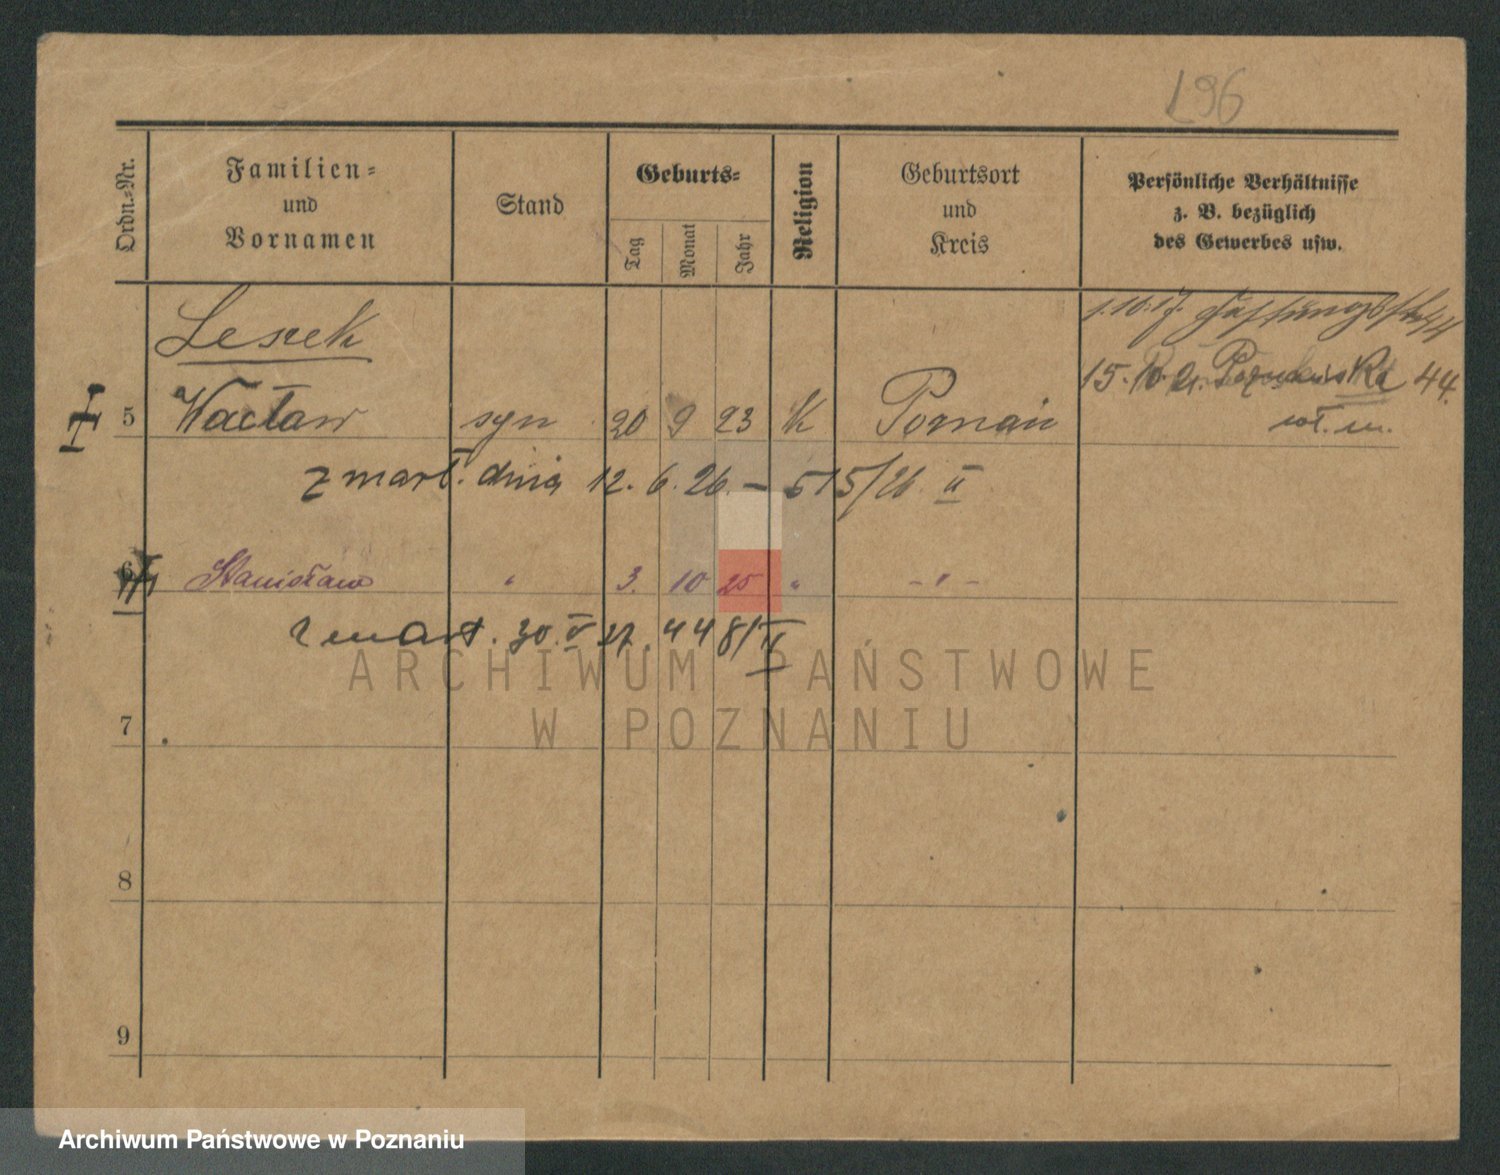 196
Ordn.-Nr.
Familien-
und
Vornamen
Stand
Geburts-
Tag
Monat
Jahr
Religion
Geburtsort
und
Kreis
Persönliche Verhältnisse
z. B. bezüglich
des Gewerbes usw.
1.10.17. 44
Leszek
15. 44.
5 Wacław syn 20 9 23 K Poznań
zmarł. dnia 12. 6. 26. – 515/26 II
6 Stanisław " 3. 10 25 " – " –
zmarł. 30. V 27. 448/II
ARCHIWUM PAŃSTWOWE
W POZNANIU
7
8
9
Archiwum Państwowe w Poznaniu